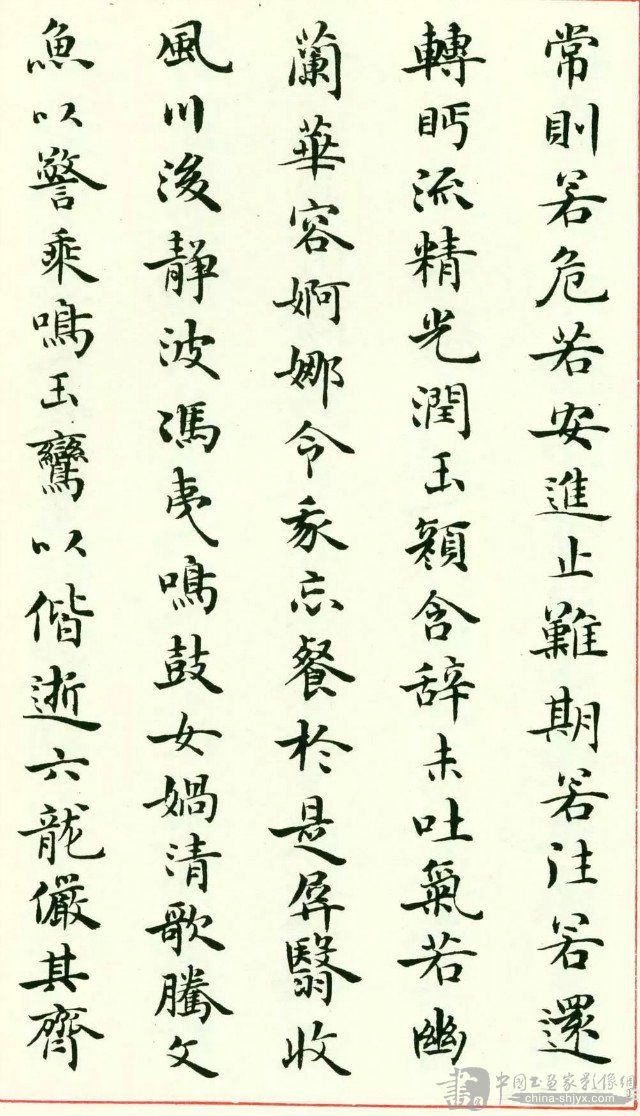 常則若危若安進止難期若注若還
轉眄流精光潤玉顏含辭未吐氣若幽
蘭華容婀娜令我忘餐於是屏翳收
風川後靜波馮夷鳴鼓女媧清歌騰文
魚以警乘鳴玉鸞以偕逝六龍儼其齊
中国书画家影像網
china-shjyx.com